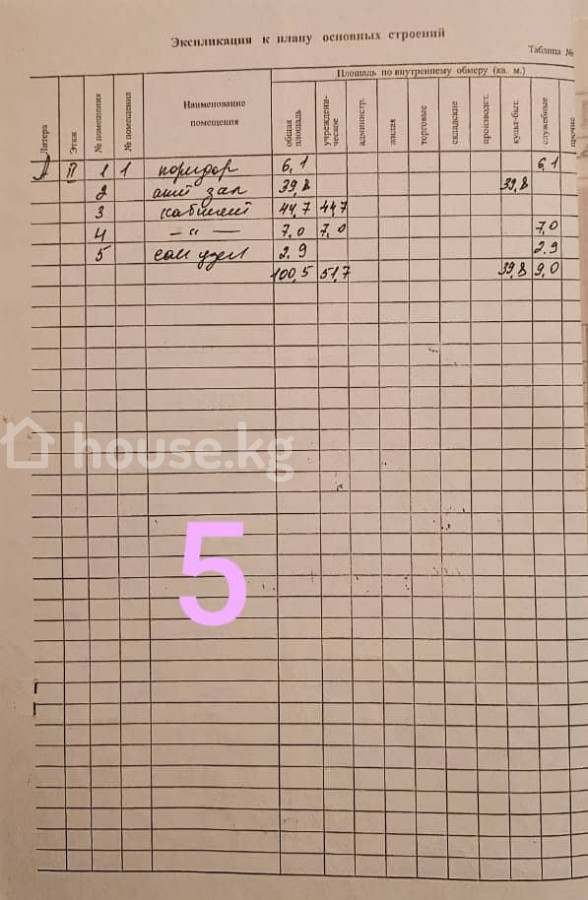 Экспликация к плану основных строений
Таблица №
Площадь по внутреннему обмеру (кв. м.)
Литера
Этаж
№ помещения
№ помещения
Наименование помещения
общая площадь
учрежденческое
администр.
жилая
торговые
складские
производст.
культ-быт.
служебные
прочие
II 1 1 коридор 6,1 6,1
2 акт зал 39,8 39,8
3 кабинет 44,7 44,7
4 — " — 7,0 7,0 7,0
5 сан узел 2,9 2,9
100,5 51,7 39,8 9,0
house.kg
5